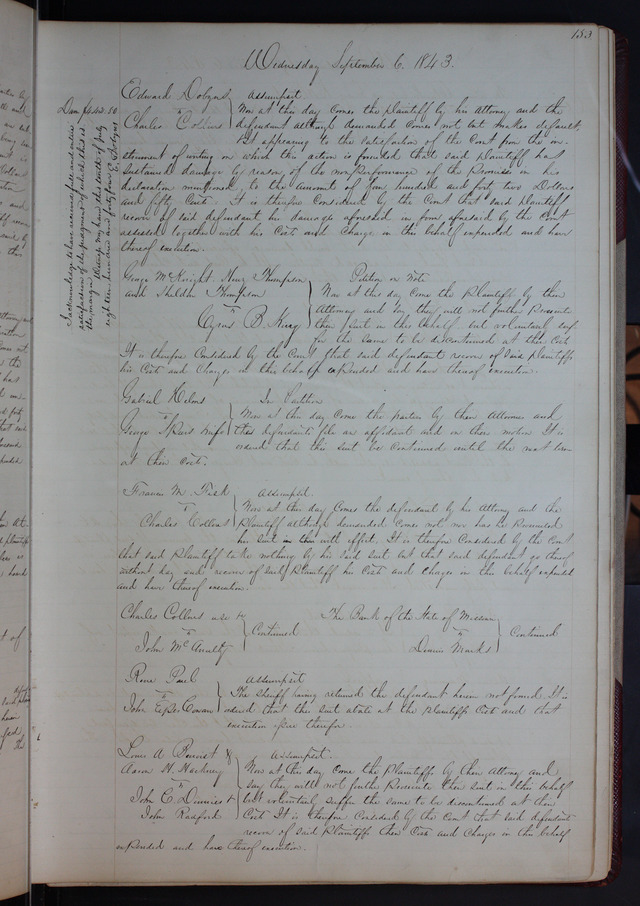 153
Wednesday September 6. 1843.
Edward Dobyns
vs
Charles Collins
Assumpsit
Now at this day comes the plaintiff by his Attorney and the
defendant although demanded comes not but makes default,
but appearing to the satisfaction of the Court from the in-
strument of writing on which this action is founded that said plaintiff has
sustained damage by reason of the non performance of the Promises in his
declaration mentioned, to the amount of four hundred and forty two Dollars
and fifty Cents. It is therefore Considered by the Court that said plaintiff
recover of said defendant his damages aforesaid in form aforesaid by the Court
assessed together with his Cost and Charges in this behalf expended and have
thereof execution.
Dam $442.50
I acknowledge to have received from
satisfaction of the judgment of which this is
the margin. Witness my hand this tenth of July
eighteen hundred and forty four
E. Dobyns
George McKnight, Henry Thompson
and Sheldon Thompson
vs
Cyrus B. King
Petition on Note
Now at this day come the Plaintiffs by their
Attorney and say they will not further Prosecute
their suit in this behalf, but voluntarily suffer
for the same to be discontinued at their Cost
It is therefore Considered by the Court that said defendant recover of said plaintiffs
his Cost and Charges in this behalf expended and have thereof execution.
Gabriel Helms
vs
George Spears
In
Now at this day come the parties by their Attornies and
the defendants file an affidavit and on their motion It is
ordered that this suit be Continued until the next term
at their Cost.
Francis M. Fisk
vs
Charles Collins
Assumpsit.
Now at this day Comes the defendant by his Attorney and the
Plaintiff although demanded Comes not nor has he Prosecuted
his suit in this with effect. It is therefore Considered by the Court
that said Plaintiff take nothing by his said suit but that said defendant go thereof
without day and recover of said Plaintiff his Cost and Charges in this behalf expended
and have thereof execution.
Charles Collins use &
vs
John McAnulty
Continued
The Bank of the State of Missouri
vs
Dennis Marks
Continued
Rene Paul
vs
John Cowan
Assumpsit
The Sheriff having returned the defendant herein not found. It is
ordered that this suit abate at the plaintiffs Cost and that
execution issue therefor
Louis A Benoist &
Aaron H. Hackney
vs
John C. Dinnies &
John Radford
Assumpsit.
Now at this day Come the Plaintiffs by their Attorney and
say they will not further Prosecute their suit in this behalf
but voluntarily suffer the same to be discontinued at their
Cost It is therefore Considered by the Court that said defendants
recover of said Plaintiffs their Cost and Charges in this behalf
expended and have thereof execution.